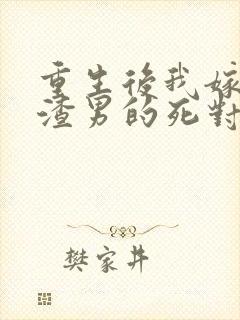 重生後我嫁
渣男的死對
樊家井